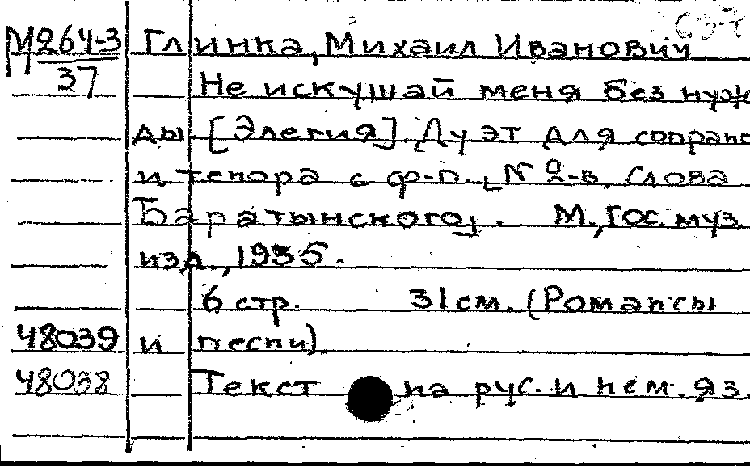 М 264-3 Глинка, Михаил Иванович
37 Не искушай меня без нуж
ды [Элегия]. Дуэт для сопрано
и тенора с ф-п. Слова
Баратынского. М., Гос. муз.
изд., 1935.
6 стр. 31 см. (Романсы
48039 и песни)
48038 Текст на рус. и нем. яз.